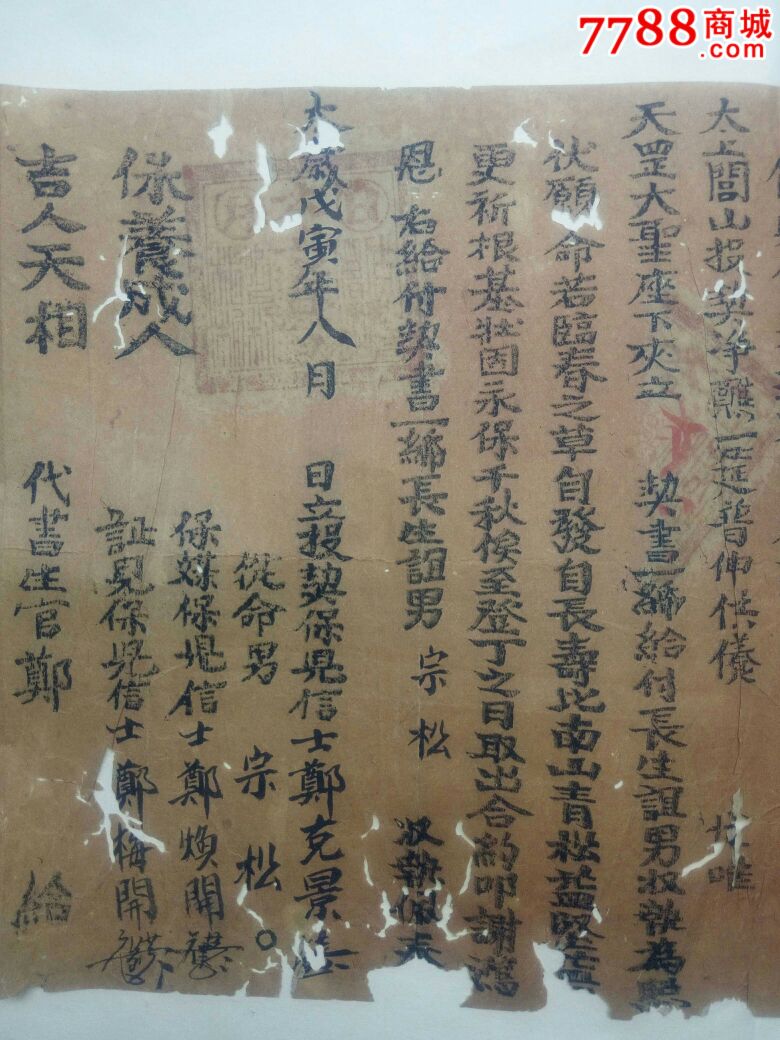 7788商城
.com
太上閭山投契净醮一延普伸供儀
天罡大聖座下夾立 契書一綈給付長生誼男收執為照
伏願命若臨春之草自發自長壽比南山青松
更祈根基壯固永保千秋俟至登丁之日取出合約叩謝
恩 右給付契書一綈長生誼男 宗松 收執
太歲戊寅年八月 日立投契保児信士鄭克景
從命男 宗松
保養成人 保媒保児信士鄭煥開
証見保児信士鄭梅開
吉人天相 代書生官鄭 給